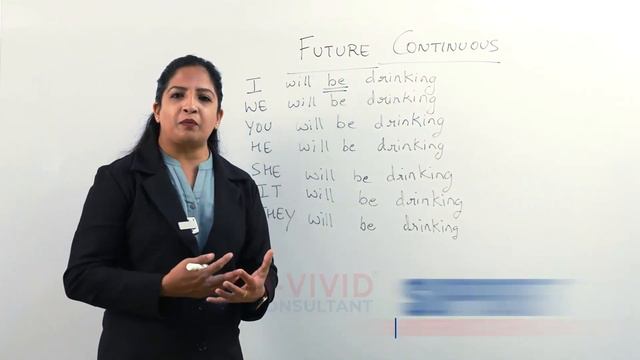 FUTURE CONTINUOUS
I will be drinking
WE will be drinking
YOU will be drinking
HE will be drinking
SHE will be drinking
IT will be drinking
THEY will be drinking
VIVID
CONSULTANT